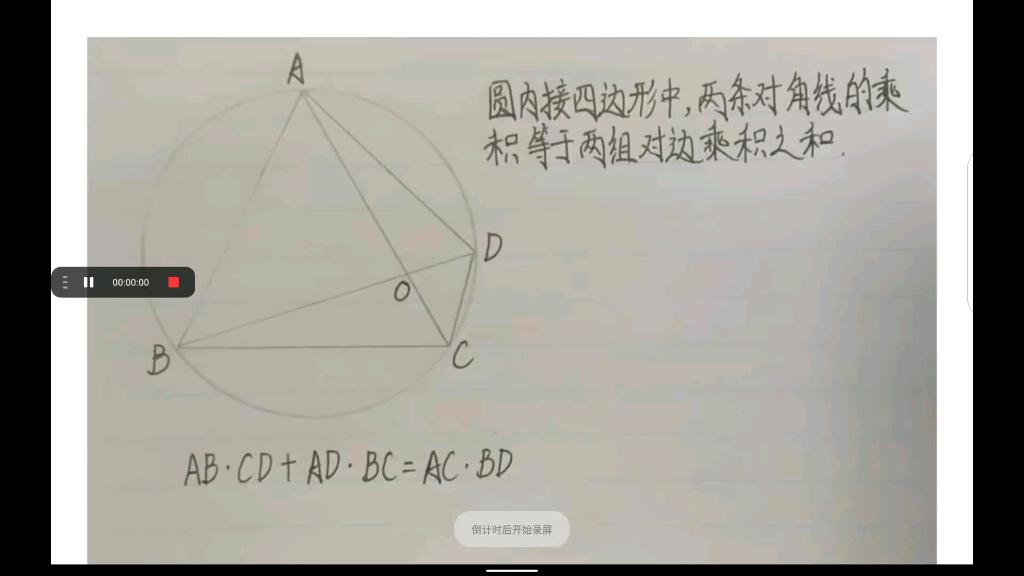 A
圆内接四边形中,两条对角线的乘
积等于两组对边乘积之和.
D
00:00:00
O
B
C
AB·CD+AD·BC=AC·BD
倒计时后开始录屏